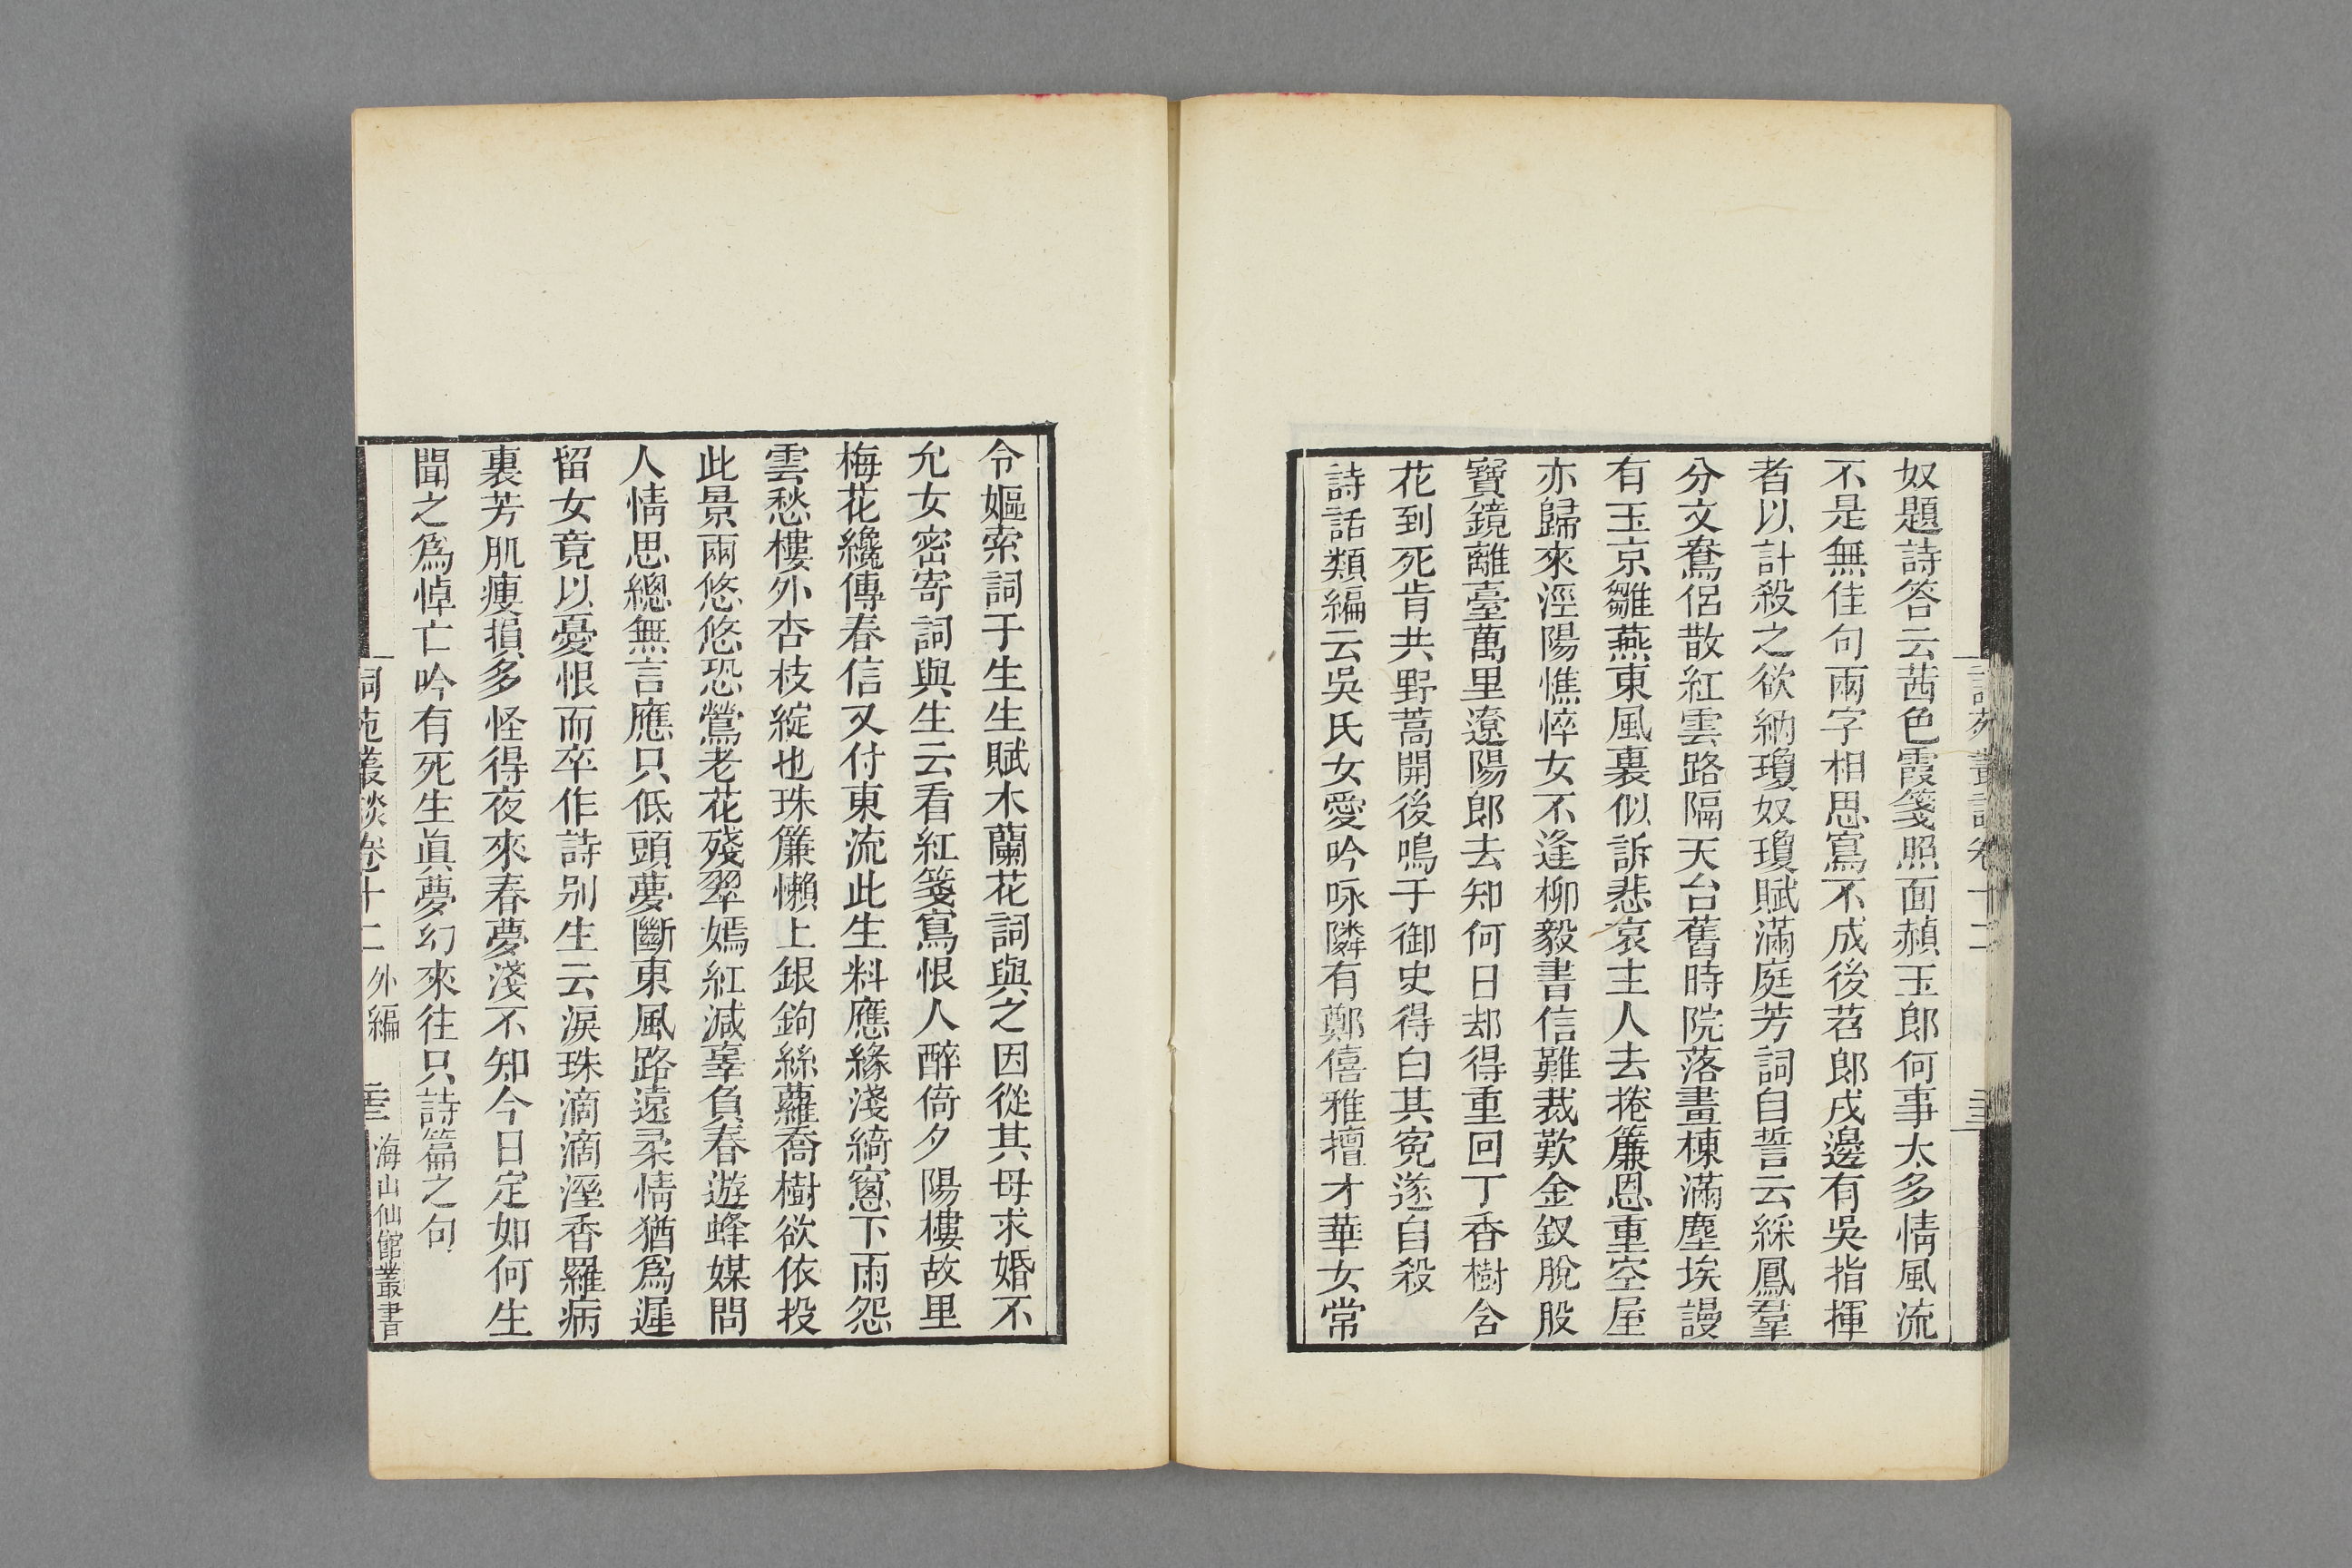 奴題詩答云茜色霞箋照面赬玉郎何事太多情風流
不是無佳句兩字相思寫不成後苕郎戍邊有吳指揮
者以計殺之欲納瓊奴瓊賦滿庭芳詞自誓云綵鳳羣
分文鴦侶散紅雲路隔天台舊時院落畫棟滿塵埃謾
有玉京雛燕東風裏似訴悲哀主人去捲簾恩重空屋
亦歸來涇陽憔悴女不逢柳毅書信難裁歎金釵脫股
寶鏡離臺萬里遼陽郎去知何日却得重回丁香樹含
花到死肯共野蒿開後鳴于御史得白其寃遂自殺
詩話類編云吳氏女愛吟咏隣有鄭僖雅擅才華女常
令嫗索詞于生生賦木蘭花詞與之因從其母求婚不
允女密寄詞與生云看紅箋寫恨人醉倚夕陽樓故里
梅花纔傳春信又付東流此生料應緣淺綺窻下雨怨
雲愁樓外杏枝綻也珠簾懶上銀鉤絲蘿喬樹欲依投
此景兩悠悠恐鶯老花殘翠嫣紅減辜負春遊蜂媒問
人情思總無言應只低頭夢斷東風路遠柔情猶爲遲
留女竟以憂恨而卒作詩别生云淚珠滴滴溼香羅病
裏芳肌瘦損多怪得夜來春夢淺不知今日定如何生
聞之爲悼亡吟有死生眞夢幻來往只詩篇之句
詞苑叢談卷十二 外編 海山仙館叢書